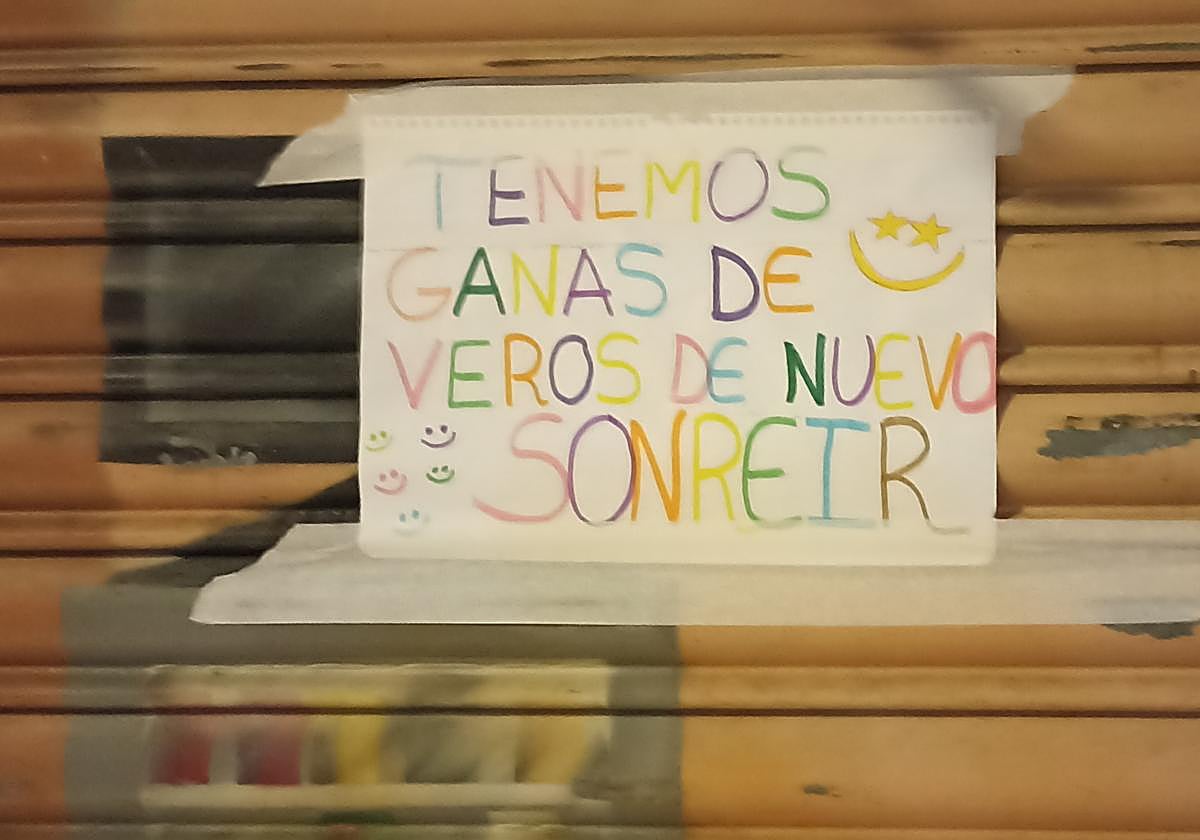 TENEMOS
GANAS DE
VEROS DE NUEVO
SONREIR